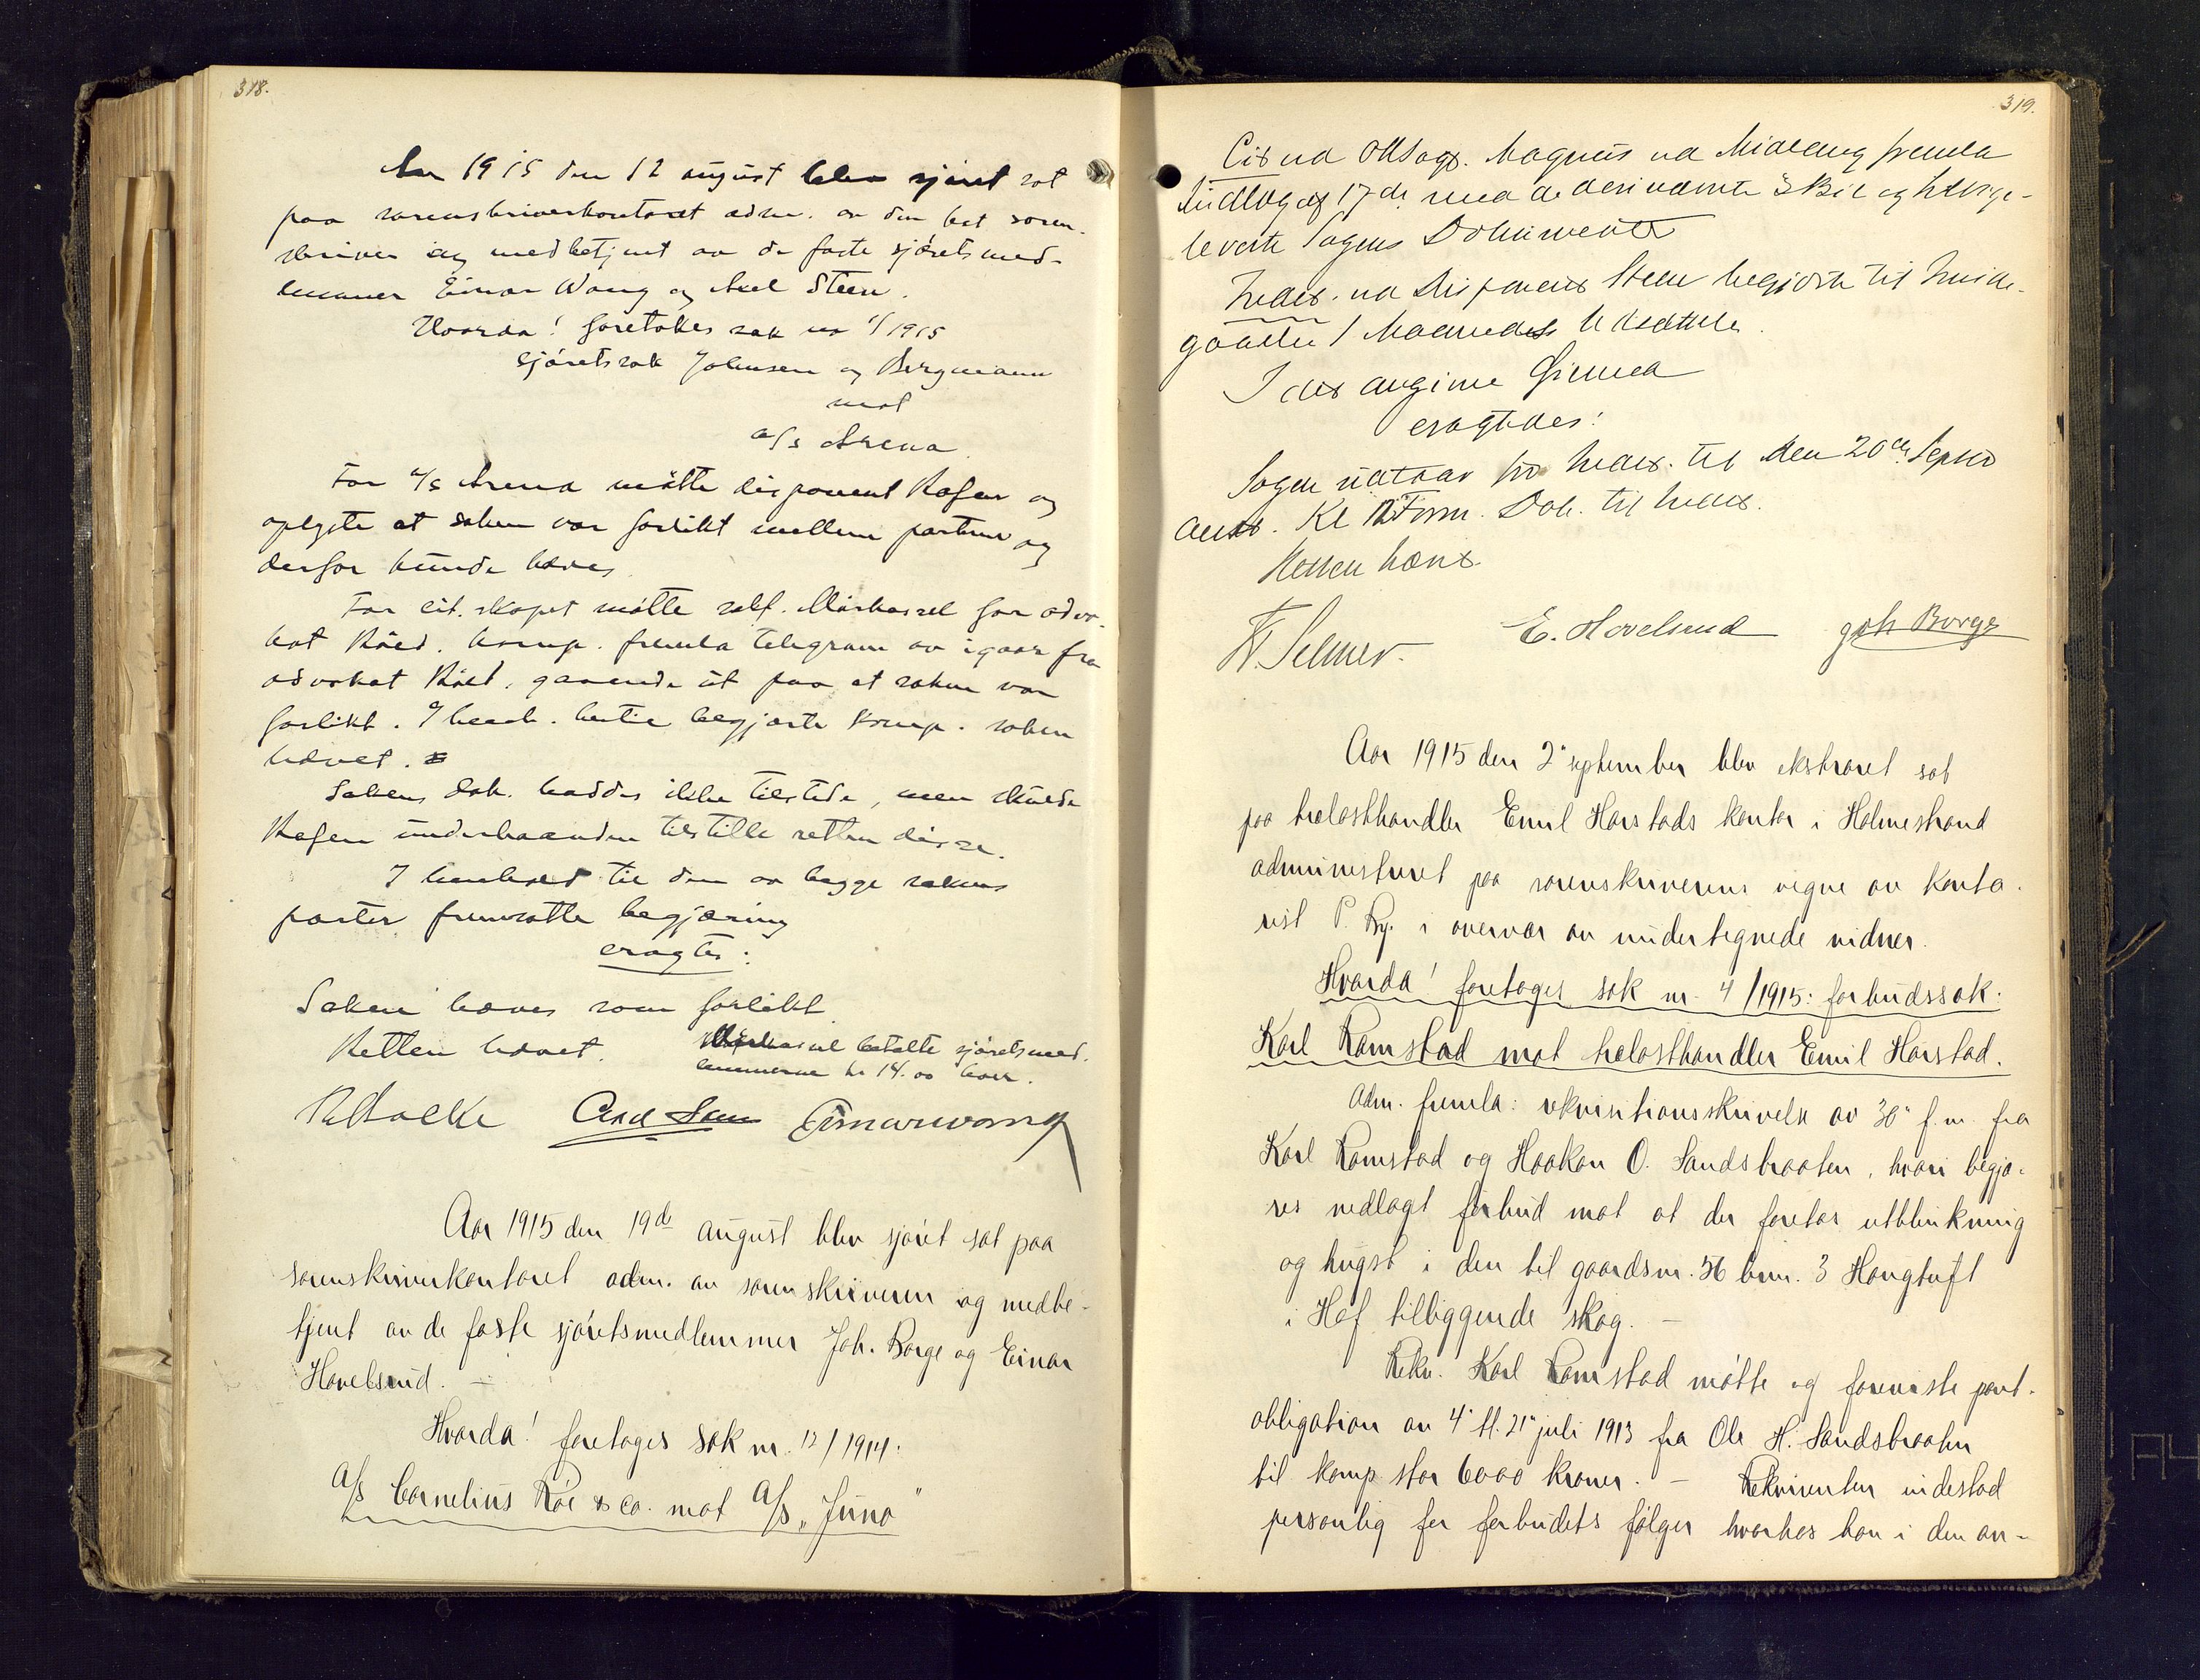 318.
Aar 1915 den 12 august blev sjøret sat
paa sorenskriverkontoret adm. av den kst soren-
skriver og medbetjent av de faste sjøretsmed-
lemmer Einar Wang og Axel Steen.
Hvorda! foretokes sak no 1/1915
sjøretssak Johnsen og Bergmann
mot
a/s Arena
For a/s Arena møtte disponent Rafen og
oplyste at saken var forlikt mellem partene og
derfor kunde hæves
For cit.skapet møtte sakf. Mørkassel for advo-
kat Röed. komp. fremla telegram av igaar fra
advokat Röed, gaaende ut paa at saken var
forlikt. I hend. hertil begjærte komp. saken
hævet.
Sakens dok. haddes ikke tilstede, men skulde
Rafen underhaanden tilstille retten disse.
I henhold til den av begge sakens
parter fremsatte begjæring
eragtes:
Saken hæves som forlikt
Retten hævet.
betalte sjøretsmed-
lemmerne kr 14.00 hver.
Axel Steen Einar Wang
Aar 1915 den 19de august blev sjøret sat paa
sorenskriverkontoret adm. av sorenskriveren og medbe-
tjent av de faste sjøretsmedlemmer Joh. Borge og Einar
Hovelsrud. -
Hvorda! foretoges sak nr. 12/1914:
A/s Cornelius Röe & co. mot A/s "Juno"
319.
Cit ved Magnus ved fremla
Indlæg af 17de med deri nævnte Bil. og
leverte Sagens Dokumenter
Indct. ved Disponent Steen begjærte til
gaaelse 1 Maaneds Udsættelse.
I det angivne Øiemed
eragtedes:
Sagen udstaar for Indct. til den 20de Septb
Kl 12 Form. Dok. til Indct.
Retten hævt.
Fr. Selmer. E. Hovelsrud Joh Borge
Aar 1915 den 2' september blev ekstraret sat
paa trælasthandler Emil Harstads kontor i Holmestrand
administreret paa sorenskriverens vegne av konto-
rist P. By. i overvær av undertegnede vidner.
Hvorda! foretoges sak nr. 4/1915: forbudssak:
Karl Ramstad mot trælasthandler Emil Harstad.
Adm. fremla: rekvisitionsskrivelse av 30' f.m. fra
Karl Ramstad og Haakon O. Sandsbraaten, hvori begjæ-
res nedlagt forbud mot at der foretas utblinkning
og hugst i den til gaardsnr. 56 brnr. 3 Haugtuft
i Hof tilliggende skog. -
Rekv. Karl Ramstad møtte og foreviste pant-
obligation av 4' tl. 21' juli 1913 fra Ole H. Sandsbraaten
til komp. stor 6000 kroner. - Rekvirenten indestod
personlig for forbudets følger hvorhos han i den an-